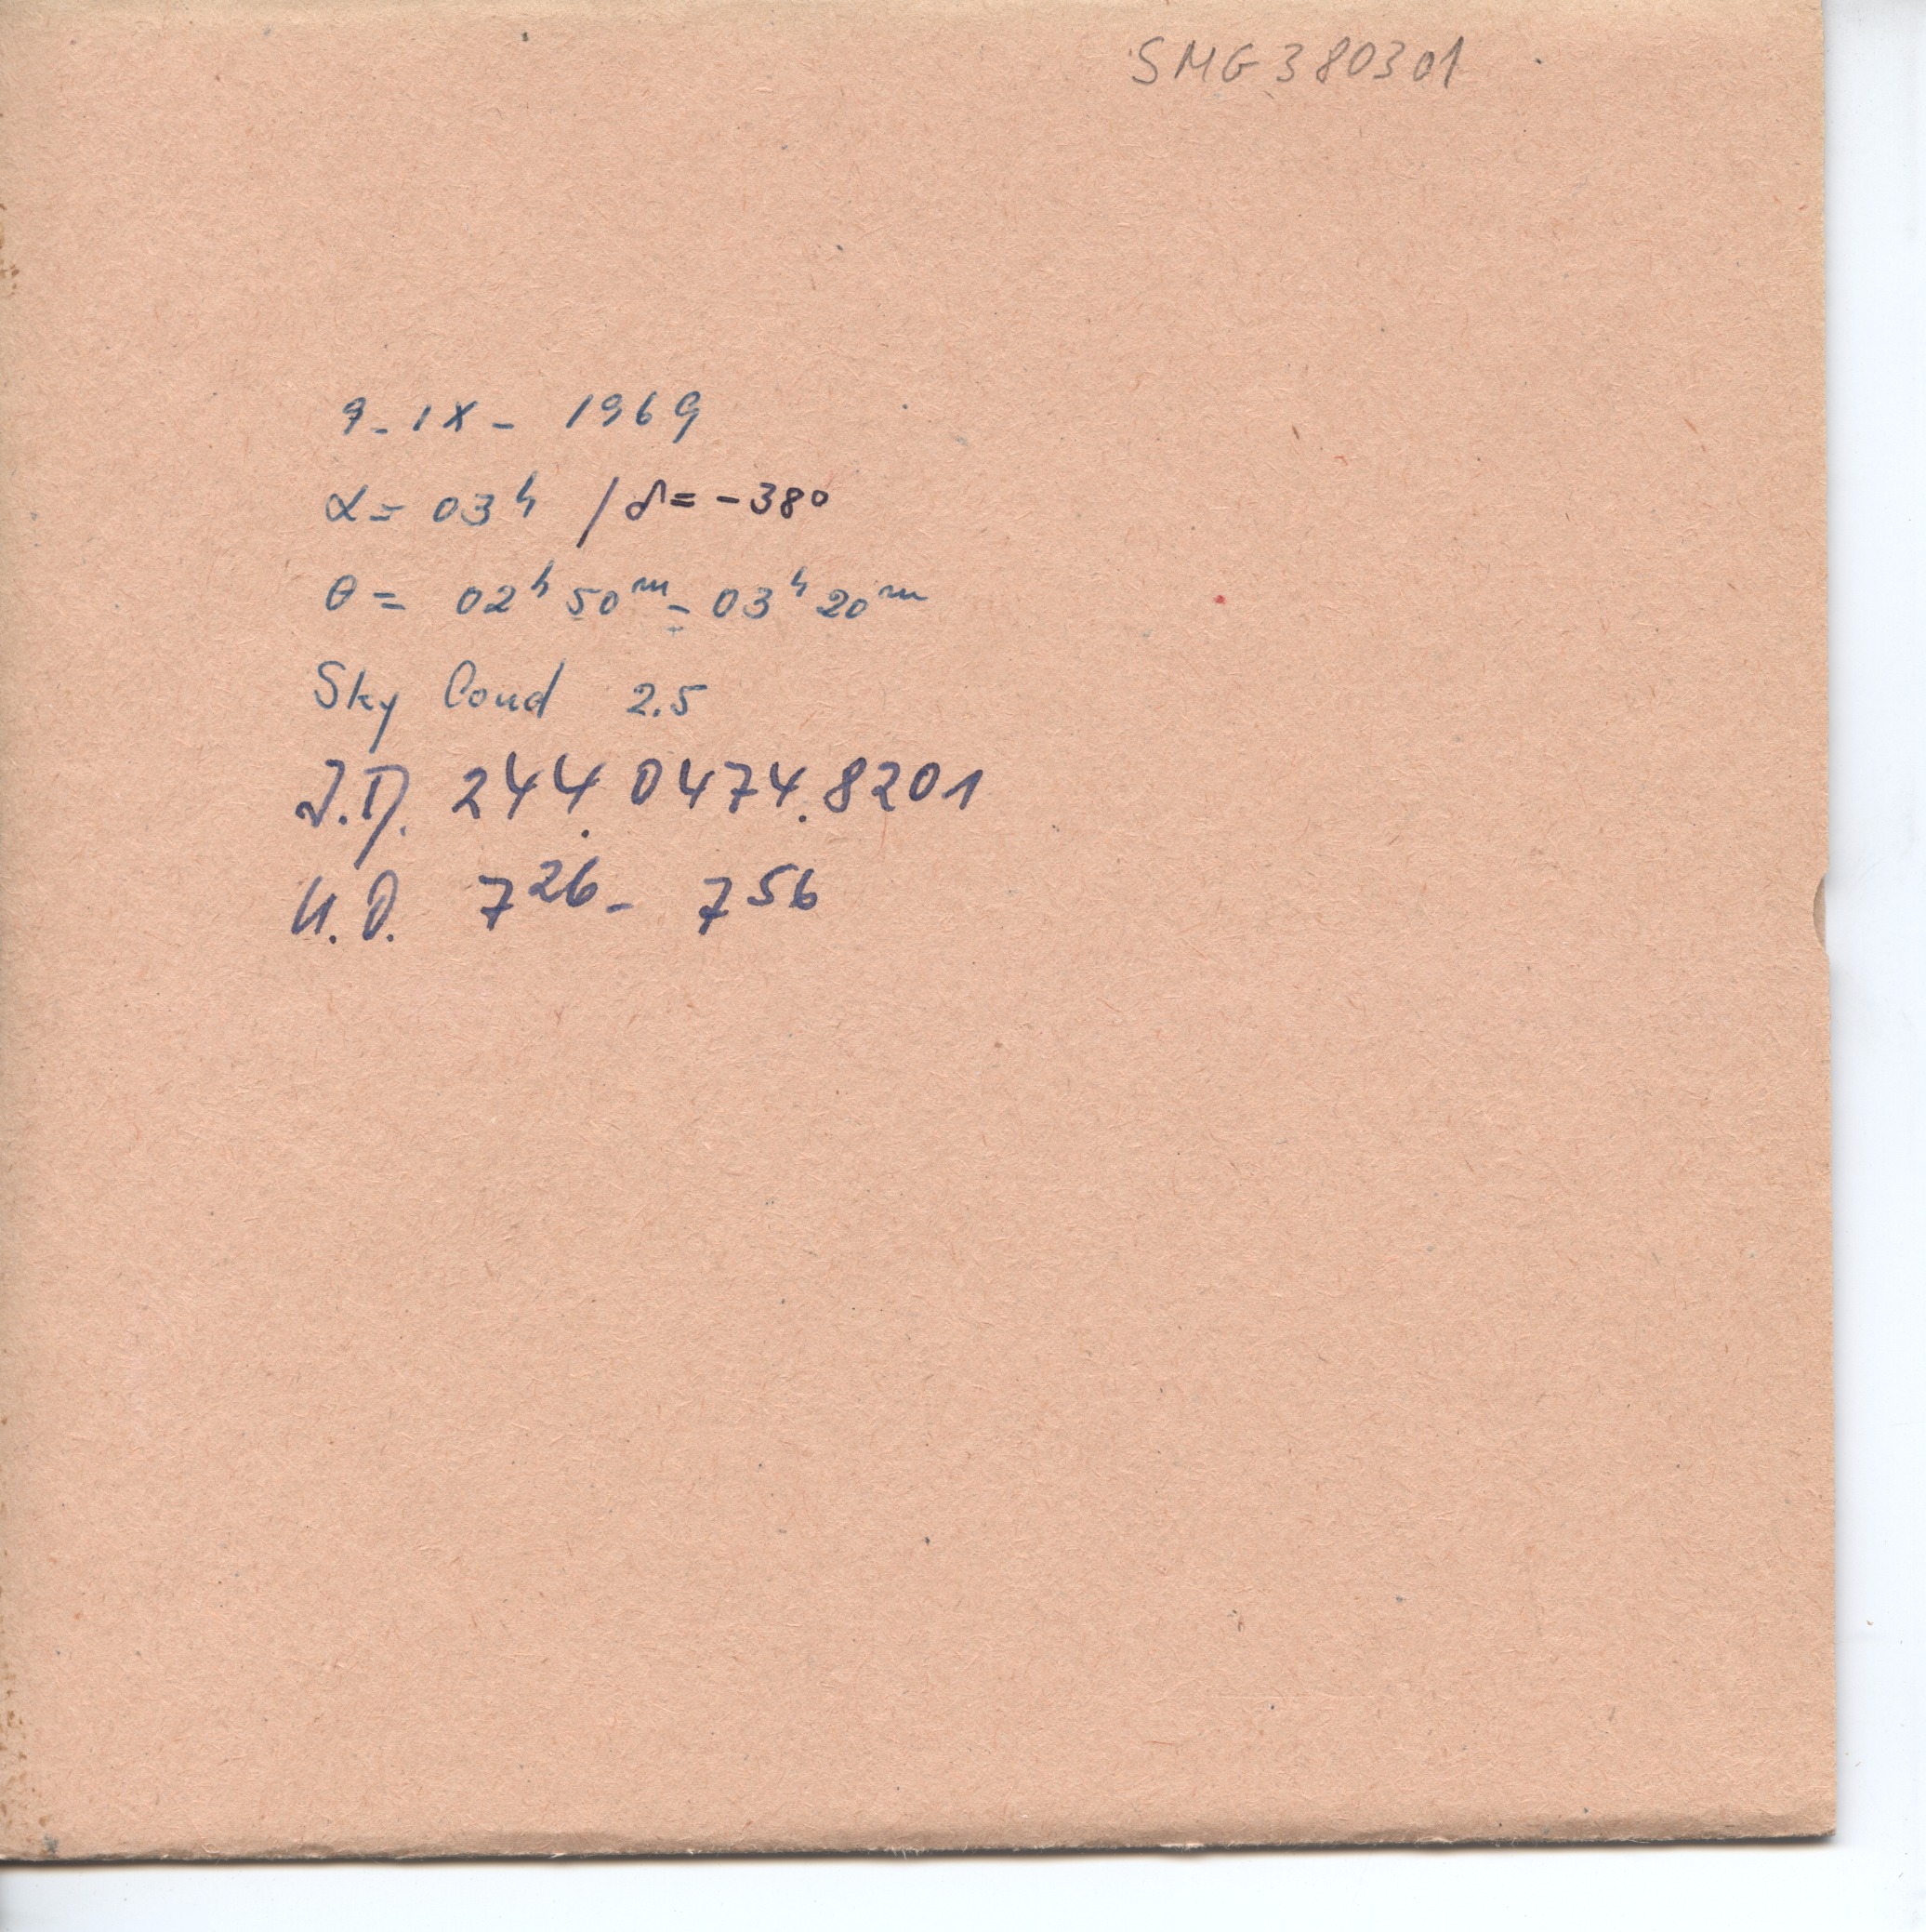 SMG380301
9-IX- 1969
α= 03ʰ / δ= -38°
θ= 02ʰ 50ᵐ - 03ʰ 20ᵐ
Sky Cond 2.5
J.D. 244.0474.8201
U.D. 7²⁶ - 7⁵⁶